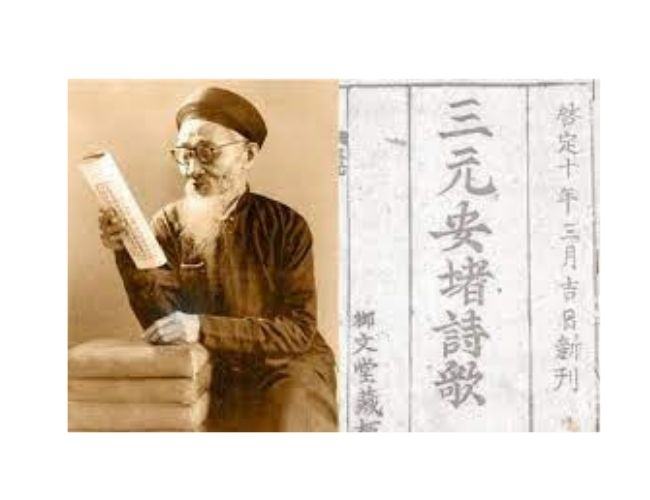 啓定十年三月吉日新刊
三元安堵詩歌
御文堂藏板